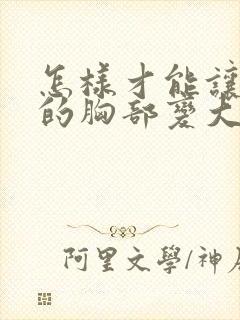 怎樣才能讓
的胸部變大
阿里文學/神居